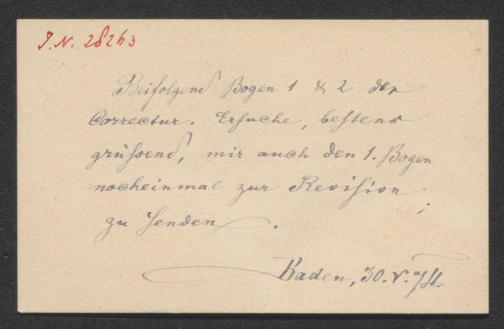 J. N. 28263
Beifolgend Bogen 1 & 2 der
Correctur. Ersuche, bestens
grüssend, mir auch den 1. Bogen
nocheinmal zur Revision
zu senden.
Baden, 30. V.